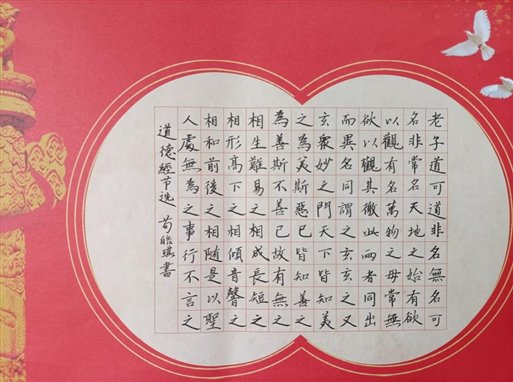 老子道可道非名無名可
名非常名天地之始有欲
以觀有名萬物之母常無
欲以觀其徼此兩者同出
而異名同謂之玄玄之又
玄衆妙之門天下皆知美
之為美斯惡已皆知善之
為善斯不善已故有無之
相生難易之相成長短之
相形高下之相傾音聲之
相和前後之相隨是以聖
人處無為之事行不言之
道德經节选 書